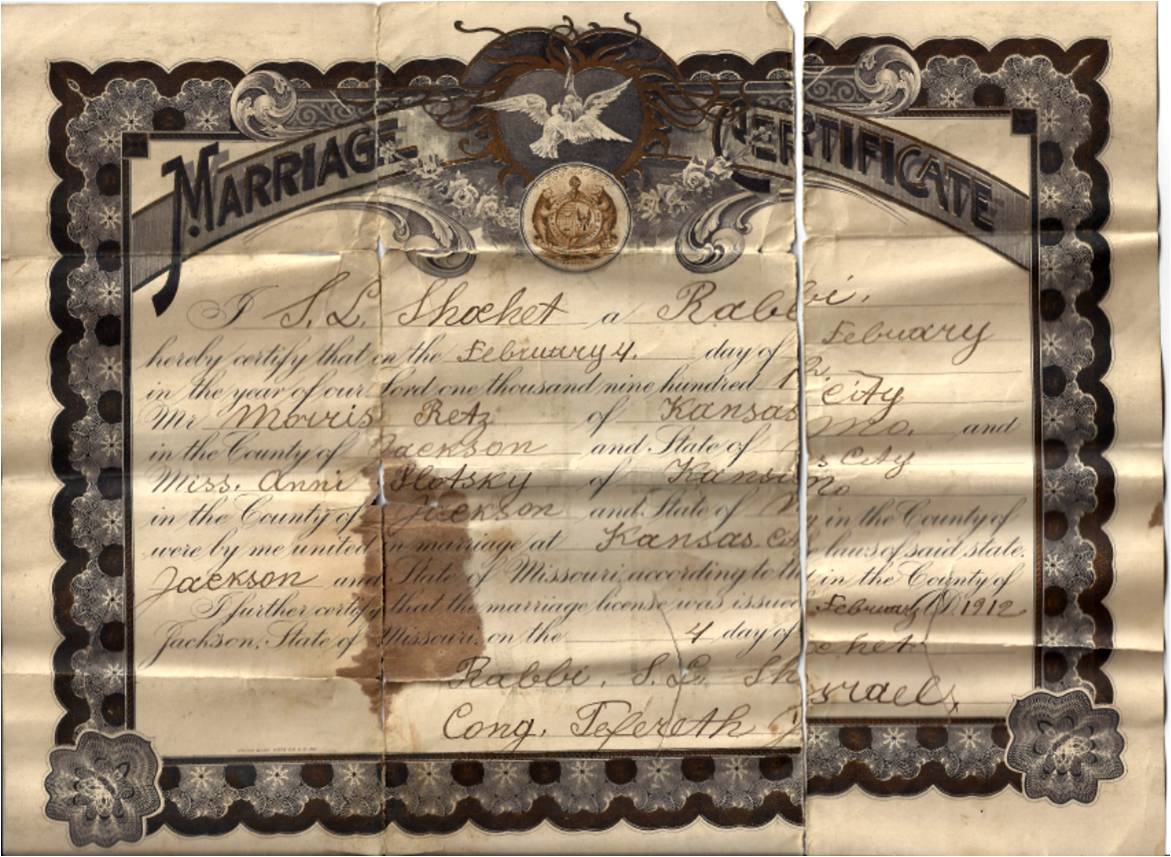 MARRIAGE CERTIFICATE
I S. L. Shochet a Rabbi.
hereby certify that on the February 4. day of February
in the year of our Lord one thousand nine hundred 12
Mr Morris Retz of Kansas City
in the County of Jackson and State of Mo. and
Miss. Anni Slotsky of Kansas City
in the County of Jackson and State of Mo
were by me united in marriage at Kansas City in the County of
Jackson and State of Missouri, according to the laws of said state.
I further certify that the marriage license was issued in the County of
Jackson, State of Missouri, on the 4 day of February AD 1912
Rabbi. S. L. Shochet
Cong. Tefereth Israel,